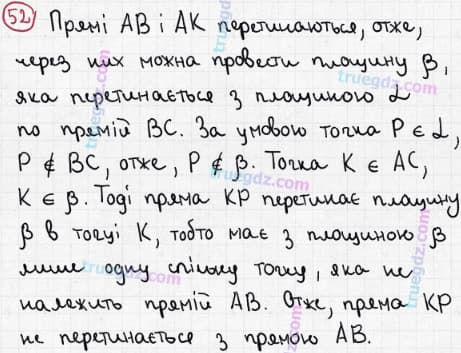 52 Прямі AB і AK перетинаються, отже,
через них можна провести площину β,
яка перетинається з площиною α
по прямій BC. За умовою точка P ∈ α,
P ∉ BC, отже, P ∉ β. Точка K ∈ AC,
K ∈ β. Тоді пряма KP перетинає площину
β в точці K, тобто має з площиною β
лише одну спільну точку, яка не
належить прямій AB. Отже, пряма KP
не перетинається з прямою AB.
truegdz.com
truegdz.com
truegdz.com
truegdz.com
truegdz.com
truegdz.com
truegdz.com